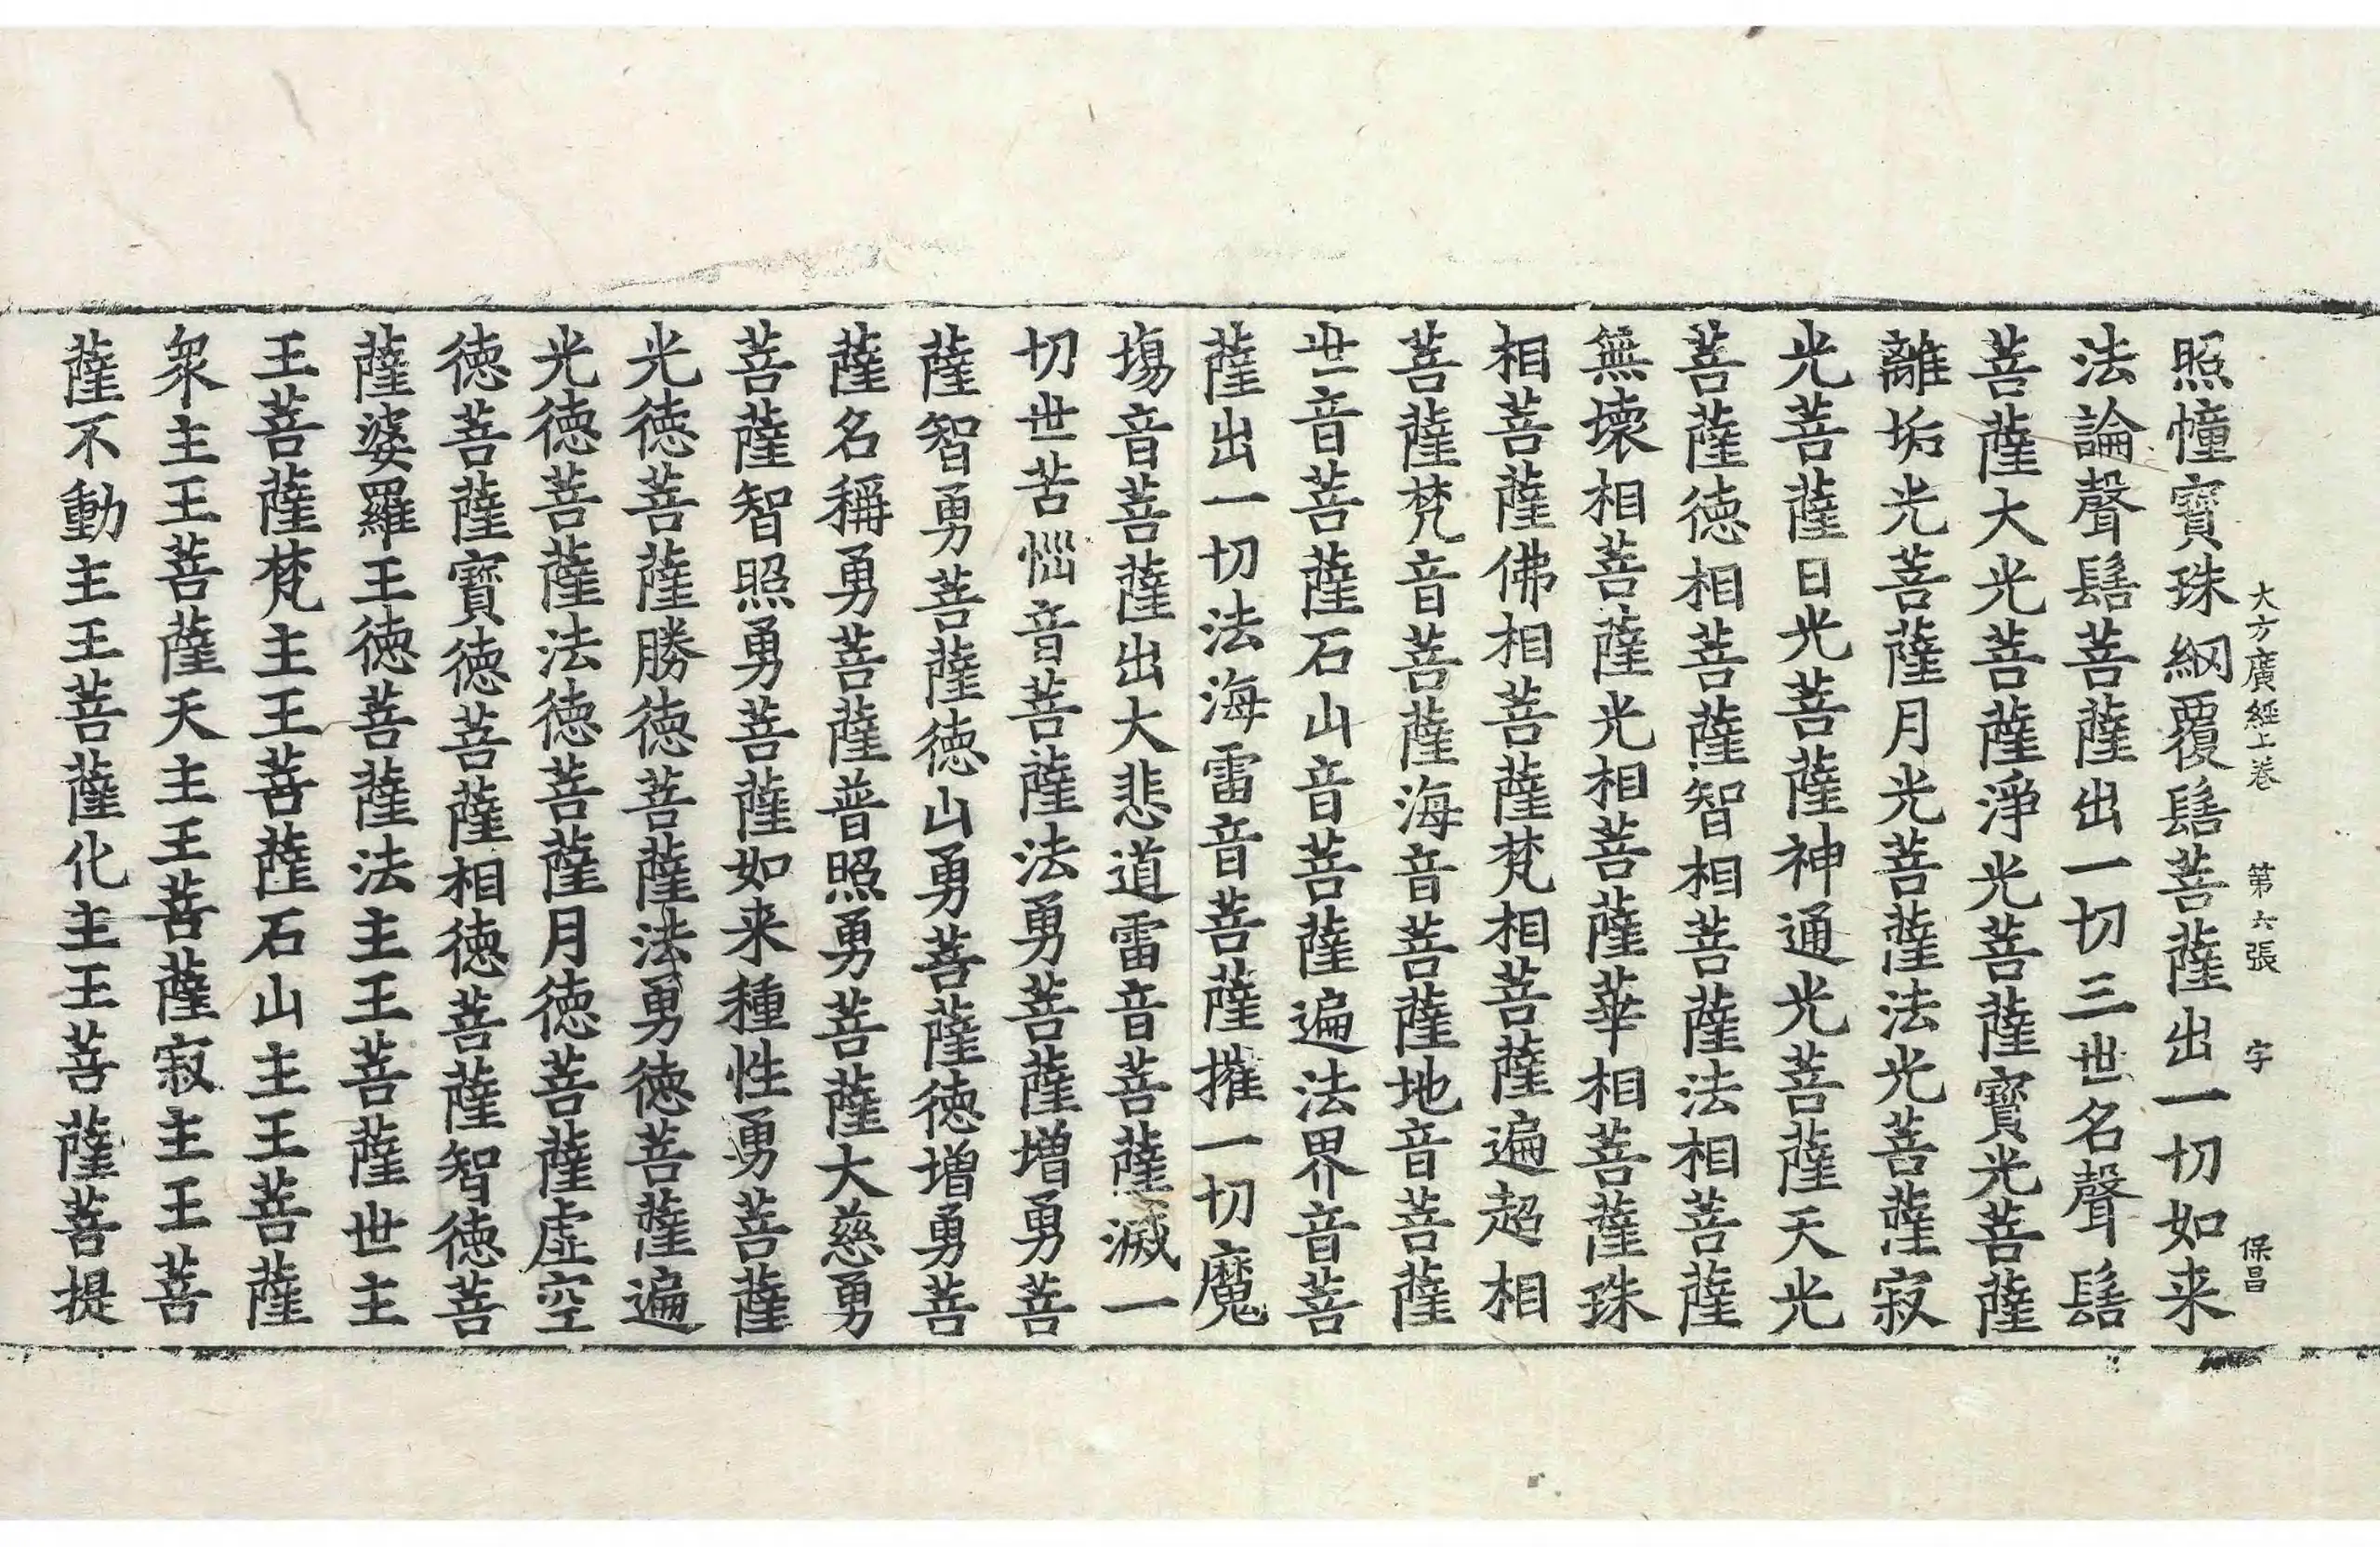 大方廣經上卷 第六張 字 保昌
照幢寶珠網覆髻菩薩出一切如来
法論聲髻菩薩出一切三世名聲髻
菩薩大光菩薩淨光菩薩寶光菩薩
離垢光菩薩月光菩薩法光菩薩寂
光菩薩日光菩薩神通光菩薩天光
菩薩徳相菩薩智相菩薩法相菩薩
無壞相菩薩光相菩薩華相菩薩珠
相菩薩佛相菩薩梵相菩薩遍超相
菩薩梵音菩薩海音菩薩地音菩薩
世音菩薩石山音菩薩遍法界音菩
薩出一切法海雷音菩薩摧一切魔
塲音菩薩出大悲道雷音菩薩滅一
切世苦惱音菩薩法勇菩薩増勇菩
薩智勇菩薩徳山勇菩薩徳増勇菩
薩名稱勇菩薩普照勇菩薩大慈勇
菩薩智照勇菩薩如来種性勇菩薩
光徳菩薩勝徳菩薩法勇徳菩薩遍
光徳菩薩法徳菩薩月徳菩薩虛空
徳菩薩寶徳菩薩相徳菩薩智徳菩
薩娑羅王徳菩薩法主王菩薩世主
王菩薩梵主王菩薩石山主王菩薩
衆主王菩薩天主王菩薩寂主王菩
薩不動主王菩薩化主王菩薩菩提